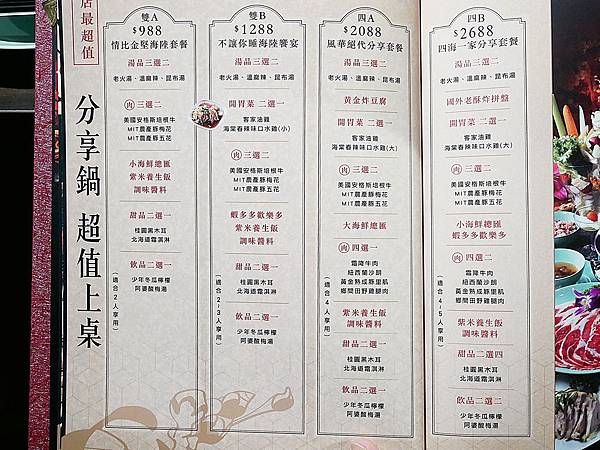 店最超值
分享鍋 超值上桌
雙A
$988
情比金堅海陸套餐
湯品三選二
老火湯、溫麻辣、昆布湯
肉三選二
美國安格斯培根牛
MIT農產豚梅花
MIT農產豚五花
小海鮮總匯
紫米養生飯
調味醬料
甜品二選一
桂圓黑木耳
北海道霜淇淋
飲品二選一
少年冬瓜檸檬
阿婆酸梅湯
(適合2人享用)
雙B
$1288
不讓你睡海陸饗宴
湯品三選二
老火湯、溫麻辣、昆布湯
開胃菜 二選一
客家油雞
海棠春辣味口水雞(小)
肉三選二
美國安格斯培根牛
MIT農產豚梅花
MIT農產豚五花
蝦多多歡樂多
紫米養生飯
調味醬料
甜品二選一
桂圓黑木耳
北海道霜淇淋
飲品二選一
少年冬瓜檸檬
阿婆酸梅湯
(適合2-3人享用)
四A
$2088
風華絕代分享套餐
湯品三選二
老火湯、溫麻辣、昆布湯
黃金炸豆腐
開胃菜 二選一
客家油雞
海棠春辣味口水雞(大)
肉三選二
美國安格斯培根牛
MIT農產豚梅花
MIT農產豚五花
大海鮮總匯
肉四選一
霜降牛肉
紐西蘭沙朗
黃金熟成豚里肌
鄉間田野雞腿肉
紫米養生飯
調味醬料
甜品二選一
桂圓黑木耳
北海道霜淇淋
飲品二選一
少年冬瓜檸檬
阿婆酸梅湯
(適合4人享用)
四B
$2688
四海一家分享套餐
湯品三選二
老火湯、溫麻辣、昆布湯
國外老酥炸拼盤
開胃菜 二選一
客家油雞
海棠春辣味口水雞(大)
肉三選二
美國安格斯培根牛
MIT農產豚梅花
MIT農產豚五花
小海鮮總匯
蝦多多歡樂多
肉四選二
霜降牛肉
紐西蘭沙朗
黃金熟成豚里肌
鄉間田野雞腿肉
紫米養生飯
調味醬料
甜品二選四
桂圓黑木耳
北海道霜淇淋
飲品二選二
少年冬瓜檸檬
阿婆酸梅湯
(適合4-5人享用)